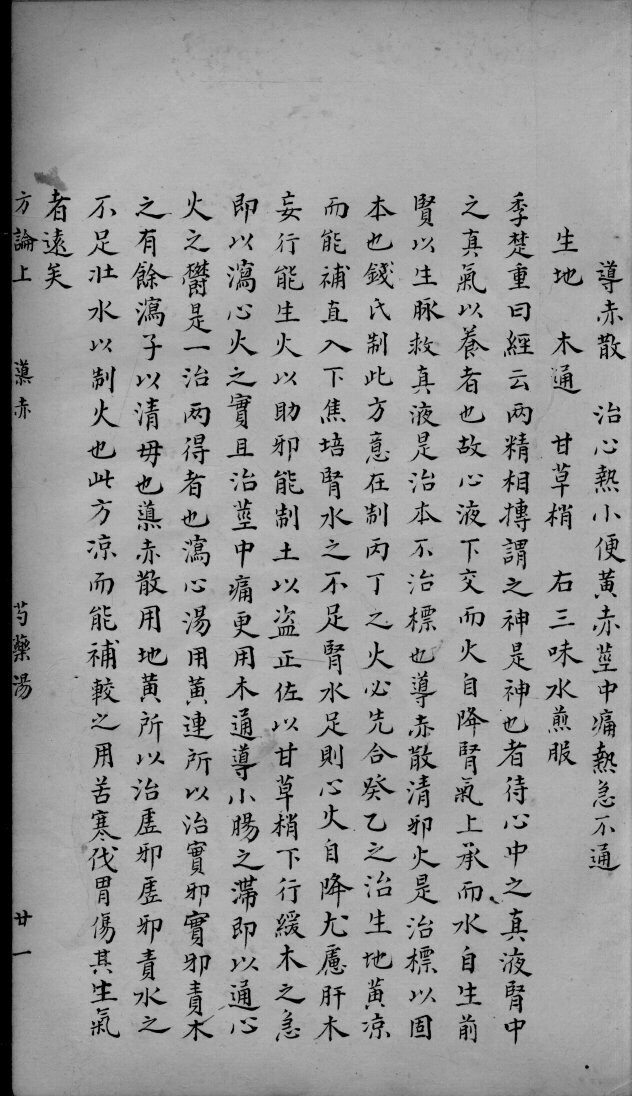 導赤散　治心熱小便黃赤莖中痛熱急不通
生地　木通　甘草梢　右三味水煎服
季楚重曰經云两精相摶謂之神是神也者待心中之真液腎中
之真氣以養者也故心液下交而火自降腎氣上承而水自生前
賢以生脉救真液是治本不治標也導赤散清邪火是治標以固
本也錢氏制此方意在制丙丁之火必先合癸乙之治生地黃凉
而能補直入下焦培腎水之不足腎水足則心火自降尤慮肝木
妄行能生火以助邪能制土以盗正佐以甘草梢下行緩木之急
即以瀉心火之實且治莖中痛更用木通導小腸之滯即以通心
火之鬱是一治两得者也瀉心湯用黃連所以治實邪實邪責木
之有餘瀉子以清母也導赤散用地黃所以治虛邪虛邪責水之
不足壯水以制火也此方凉而能補較之用苦寒伐胃傷其生氣
者遠矣
方論上　導赤　芍藥湯　廿一